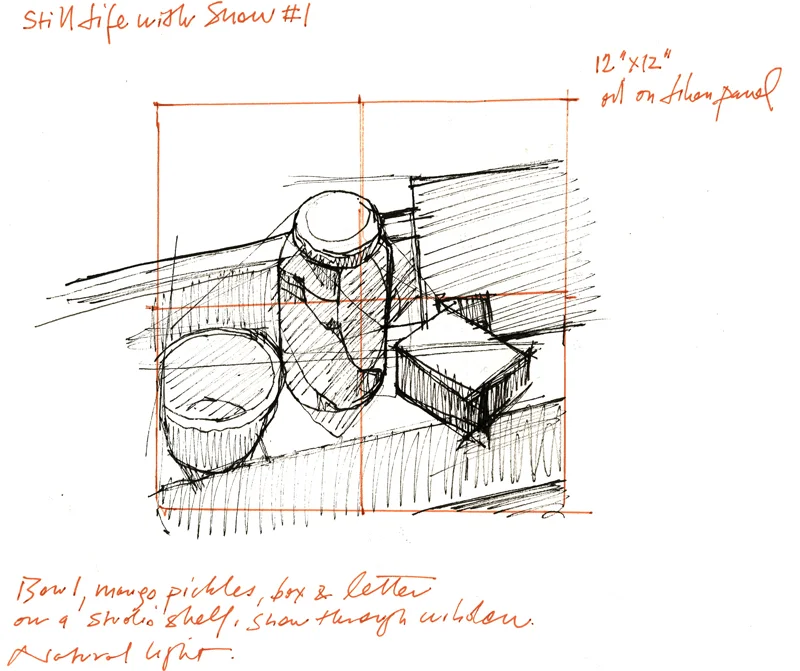 Still Life with Snow #1
12"x12"
oil on linen panel
Bowl, mango pickles, box & letter
on a studio shelf, snow through window.
Natural light.